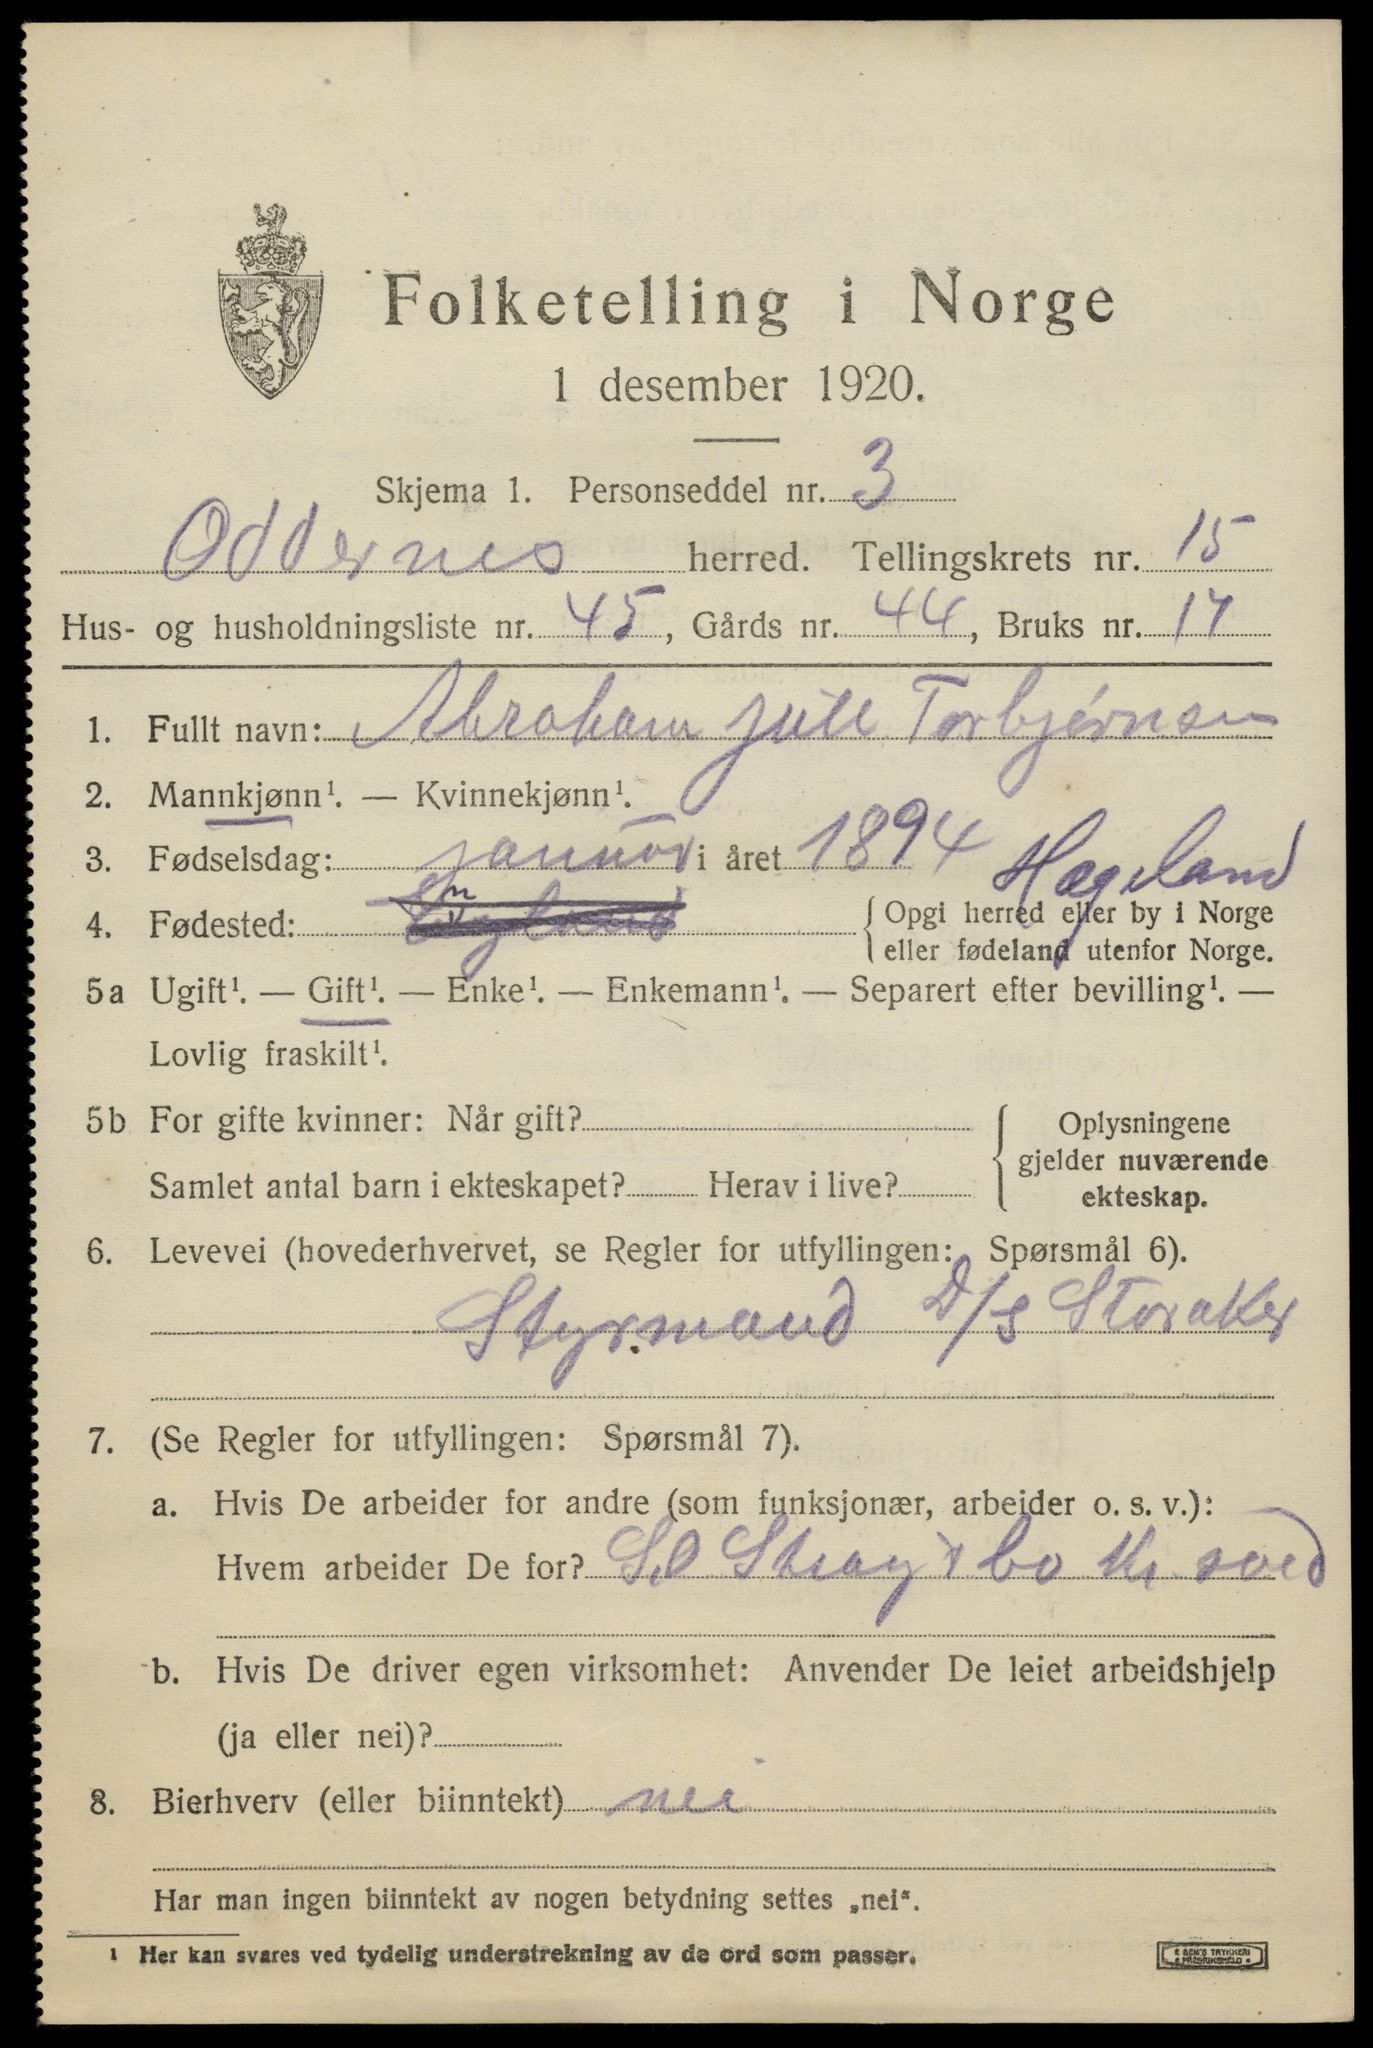 Folketelling i Norge
1 desember 1920.
Skjema 1. Personseddel nr. 3
Oddernes herred. Tellingskrets nr. 15
Hus- og husholdningsliste nr. 45, Gårds nr. 44, Bruks nr. 17
1. Fullt navn: Abraham Juell Torbjörnsen
2. Mannkjønn¹. — Kvinnekjønn¹.
3. Fødselsdag: januar i året 1894
Hægeland
4. Fødested: { Opgi herred eller by i Norge
eller fødeland utenfor Norge.
5a Ugift¹. — Gift¹. — Enke¹. — Enkemann¹. — Separert efter bevilling¹. —
Lovlig fraskilt¹.
5b For gifte kvinner: Når gift? { Oplysningene
gjelder nuværende
Samlet antal barn i ekteskapet? Herav i live? ekteskap.
6. Levevei (hovederhvervet, se Regler for utfyllingen: Spørsmål 6).
Styrmand D/S Storaker
7. (Se Regler for utfyllingen: Spørsmål 7).
a. Hvis De arbeider for andre (som funksjonær, arbeider o. s. v.):
Hvem arbeider De for? S.O Stray & Co Kr. sand
b. Hvis De driver egen virksomhet: Anvender De leiet arbeidshjelp
(ja eller nei)?
8. Bierhverv (eller biinntekt) nei
Har man ingen biinntekt av nogen betydning settes „nei“.
¹ Her kan svares ved tydelig understrekning av de ord som passer.